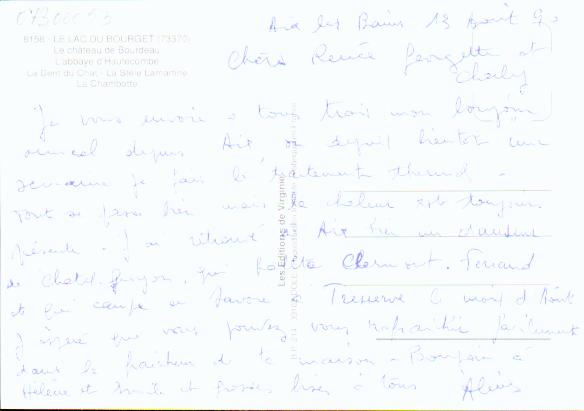 07300053
8156 - LE LAC DU BOURGET (73370)
Le château de Bourdeau
L'abbaye d'Hautecombe
La Dent du Chat - La Stèle Lamartine
La Chambotte
Aix les Bains 13 Août 9
Chers Renée Georgette et
Charly
Je vous envoie à tous trois mon bonjour
amical depuis Aix où depuis bientôt une
semaine je fais le traitement thermal.
Tout se passe bien mais la chaleur est toujours
présente. J'ai retrouvé à Aix un danseur
de Chatel Guyon, qui Clermont-Ferrand
et qui campe en Savoie à Tresserve le mois d'Août
J'espère que vous pouvez vous rafraichir facilement
dans la fraicheur de la maison - Bonjour à
Hélène et Emile et grosses bises à tous
Les Editions de Virginie